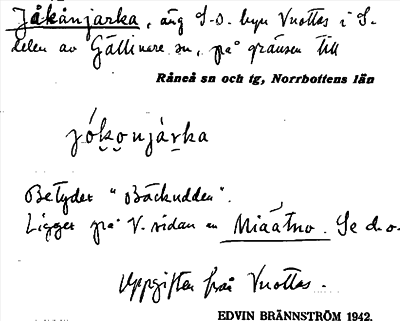 Jåkånjarka, äng S-o. byn Vuottas i S.
delen av Gällivare sn, på gränsen till
Råneå sn och tg, Norrbottens län
jókonjàrka
Betyder "Bäckudden".
Ligger på V. sidan av Miáátno. Se d.o.
Uppgiften från Vuottas.
EDVIN BRÄNNSTRÖM 1942.